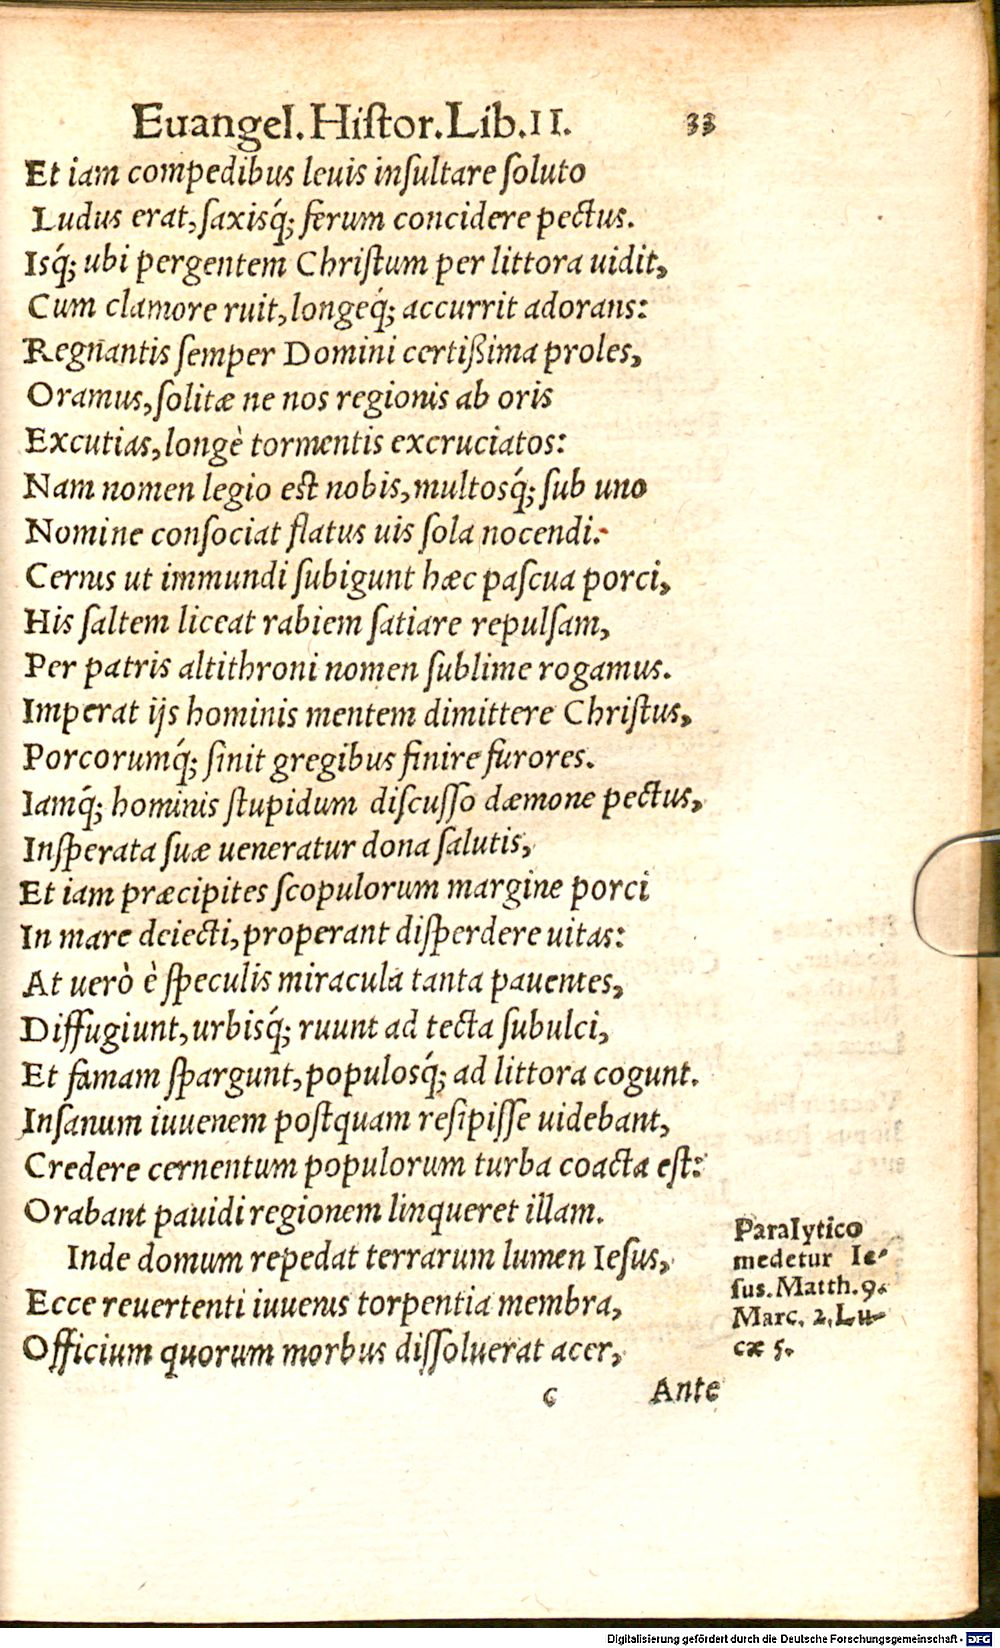 Euangel. Histor. Lib. II. 33
Et iam compedibus leuis insultare soluto
Ludus erat, saxisq́; ferum concidere pectus.
Isq́; ubi pergentem Christum per littora uidit,
Cum clamore ruit, longeq́; accurrit adorans:
Regnantis semper Domini certißima proles,
Oramus, solitæ ne nos regionis ab oris
Excutias, longè tormentis excruciatos:
Nam nomen legio est nobis, multosq́; sub uno
Nomine consociat flatus uis sola nocendi.
Cernis ut immundi subigunt hæc pascua porci,
His saltem liceat rabiem satiare repulsam,
Per patris altithroni nomen sublime rogamus.
Imperat ijs hominis mentem dimittere Christus,
Porcorumq́; sinit gregibus finire furores.
Iamq́; hominis stupidum discusso dæmone pectus,
Insperata suæ ueneratur dona salutis,
Et iam præcipites scopulorum margine porci
In mare deiecti, properant disperdere uitas:
At uerò è speculis miracula tanta pauentes,
Diffugiunt, urbisq́; ruunt ad tecta subulci,
Et famam spargunt, populosq́; ad littora cogunt.
Insanum iuuenem postquam resipisse uidebant,
Credere cernentum populorum turba coacta est:
Orabant pauidi regionem linqueret illam.
Inde domum repedat terrarum lumen Iesus,
Ecce reuertenti iuuenis torpentia membra,
Officium quorum morbus dissoluerat acer,
Paralytico
medetur Ie-
sus. Matth. 9.
Marc. 2. Lu-
cæ 5.
c Ante
Digitalisierung gefördert durch die Deutsche Forschungsgemeinschaft - DFG